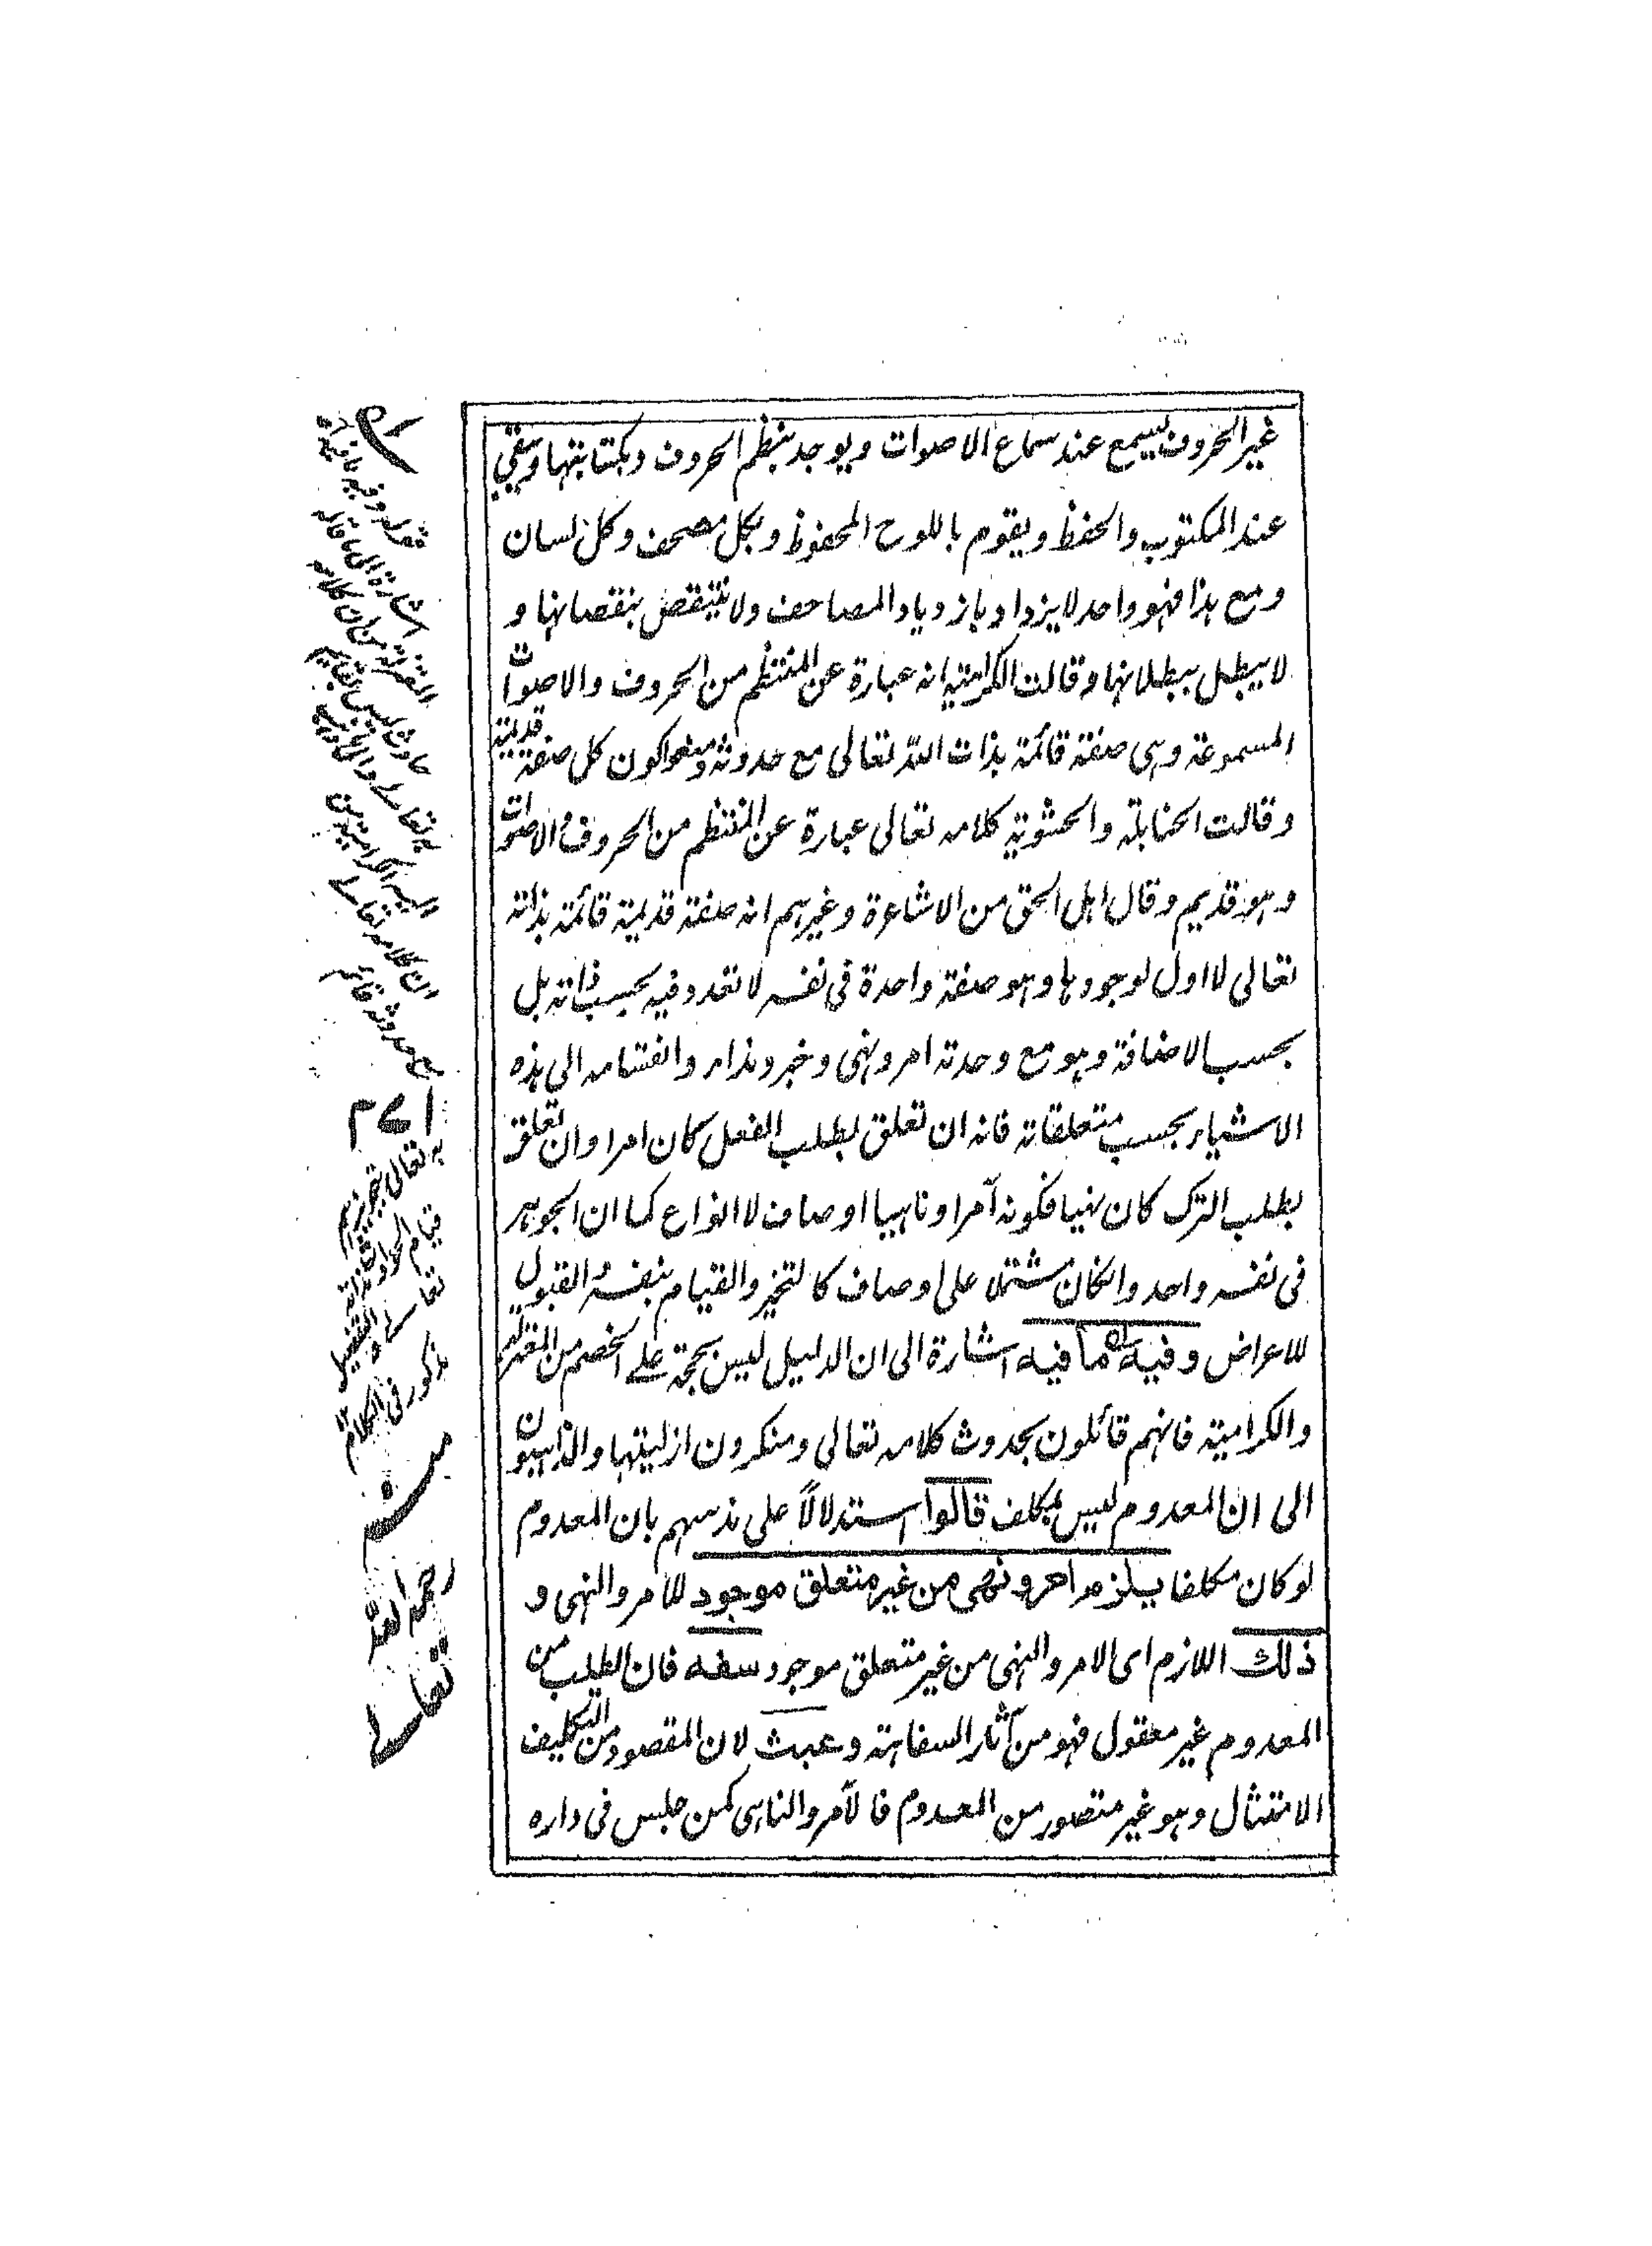 غير الحروف يسمع عند سماع الاصوات ويوجد بنظم الحروف وبكتابتها ويبقى
عند المكتوب والحفظ ويقوم باللوح المحفوظ وبكل مصحف وكل لسان
ومع هذا فهو واحد لا يزداد بازدياد المصاحف ولا ينتقص بنقصانها و
لا يبطل ببطلانها وقالت الكرامية انه عبارة عن المنتظم من الحروف والاصوات
المسموعة وهى صفة قائمة بذات الله تعالى مع حدوثه ومنعوا كون كل صفة قديمة
وقالت الحنابلة والحشوية كلامه تعالى عبارة عن المنتظم من الحروف والاصوات
وهو قديم وقال اهل الحق من الاشاعرة وغيرهم انه صفة قديمة قائمة بذاته
تعالى لا اول لوجودها وهو صفة واحدة فى نفسه لا تعدد فيه بحسب ذاته بل
بحسب الاضافة وهو مع وحدته امر ونهى وخبر ونداء وانقسامه الى هذه
الاشياء بحسب متعلقاته فانه ان تعلق بطلب الفعل كان امرا وان تعلق
بطلب الترك كان نهيا فكونه آمرا وناهيا اوصاف لا انواع كما ان الجوهر
فى نفسه واحد وانكان مشتملا على اوصاف كالتحيز والقيام بنفسه والقبول
للاعراض وفيه ما فيه اشارة الى ان الدليل ليس بحجة على الخصم من المعتزلة
والكرامية فانهم قائلون بحدوث كلامه تعالى ومنكرون ازليتها والذاهبون
الى ان المعدوم ليس بمكلف قالوا استدلالاً على مذهبهم بان المعدوم
لو كان مكلفا يلزم امر ونهى من غير متعلق موجود للامر والنهى و
ذلك اللازم اى الامر والنهى من غير متعلق موجود سفه فان الطلب من
المعدوم غير معقول فهو من آثار السفاهة وعبث لان المقصود من التكليف
الامتثال وهو غير متصور من المعدوم فالآمر والناهى كمن جلس فى داره
قوله وفيه ما فيه
اشارة الى ما قاله
المعتزلة من ان كلامه
حادث ليس بقائم
به تعالى والى ما ذهب
اليه الكرامية من
ان كلامه تعالى
مع حدوثه قائم
به تعالى بتجويزهم
قيام الحوادث بذاته
تعالى والتفصيل
مذكور فى الكلام ١٢
منه
رحمه الله
تعالى